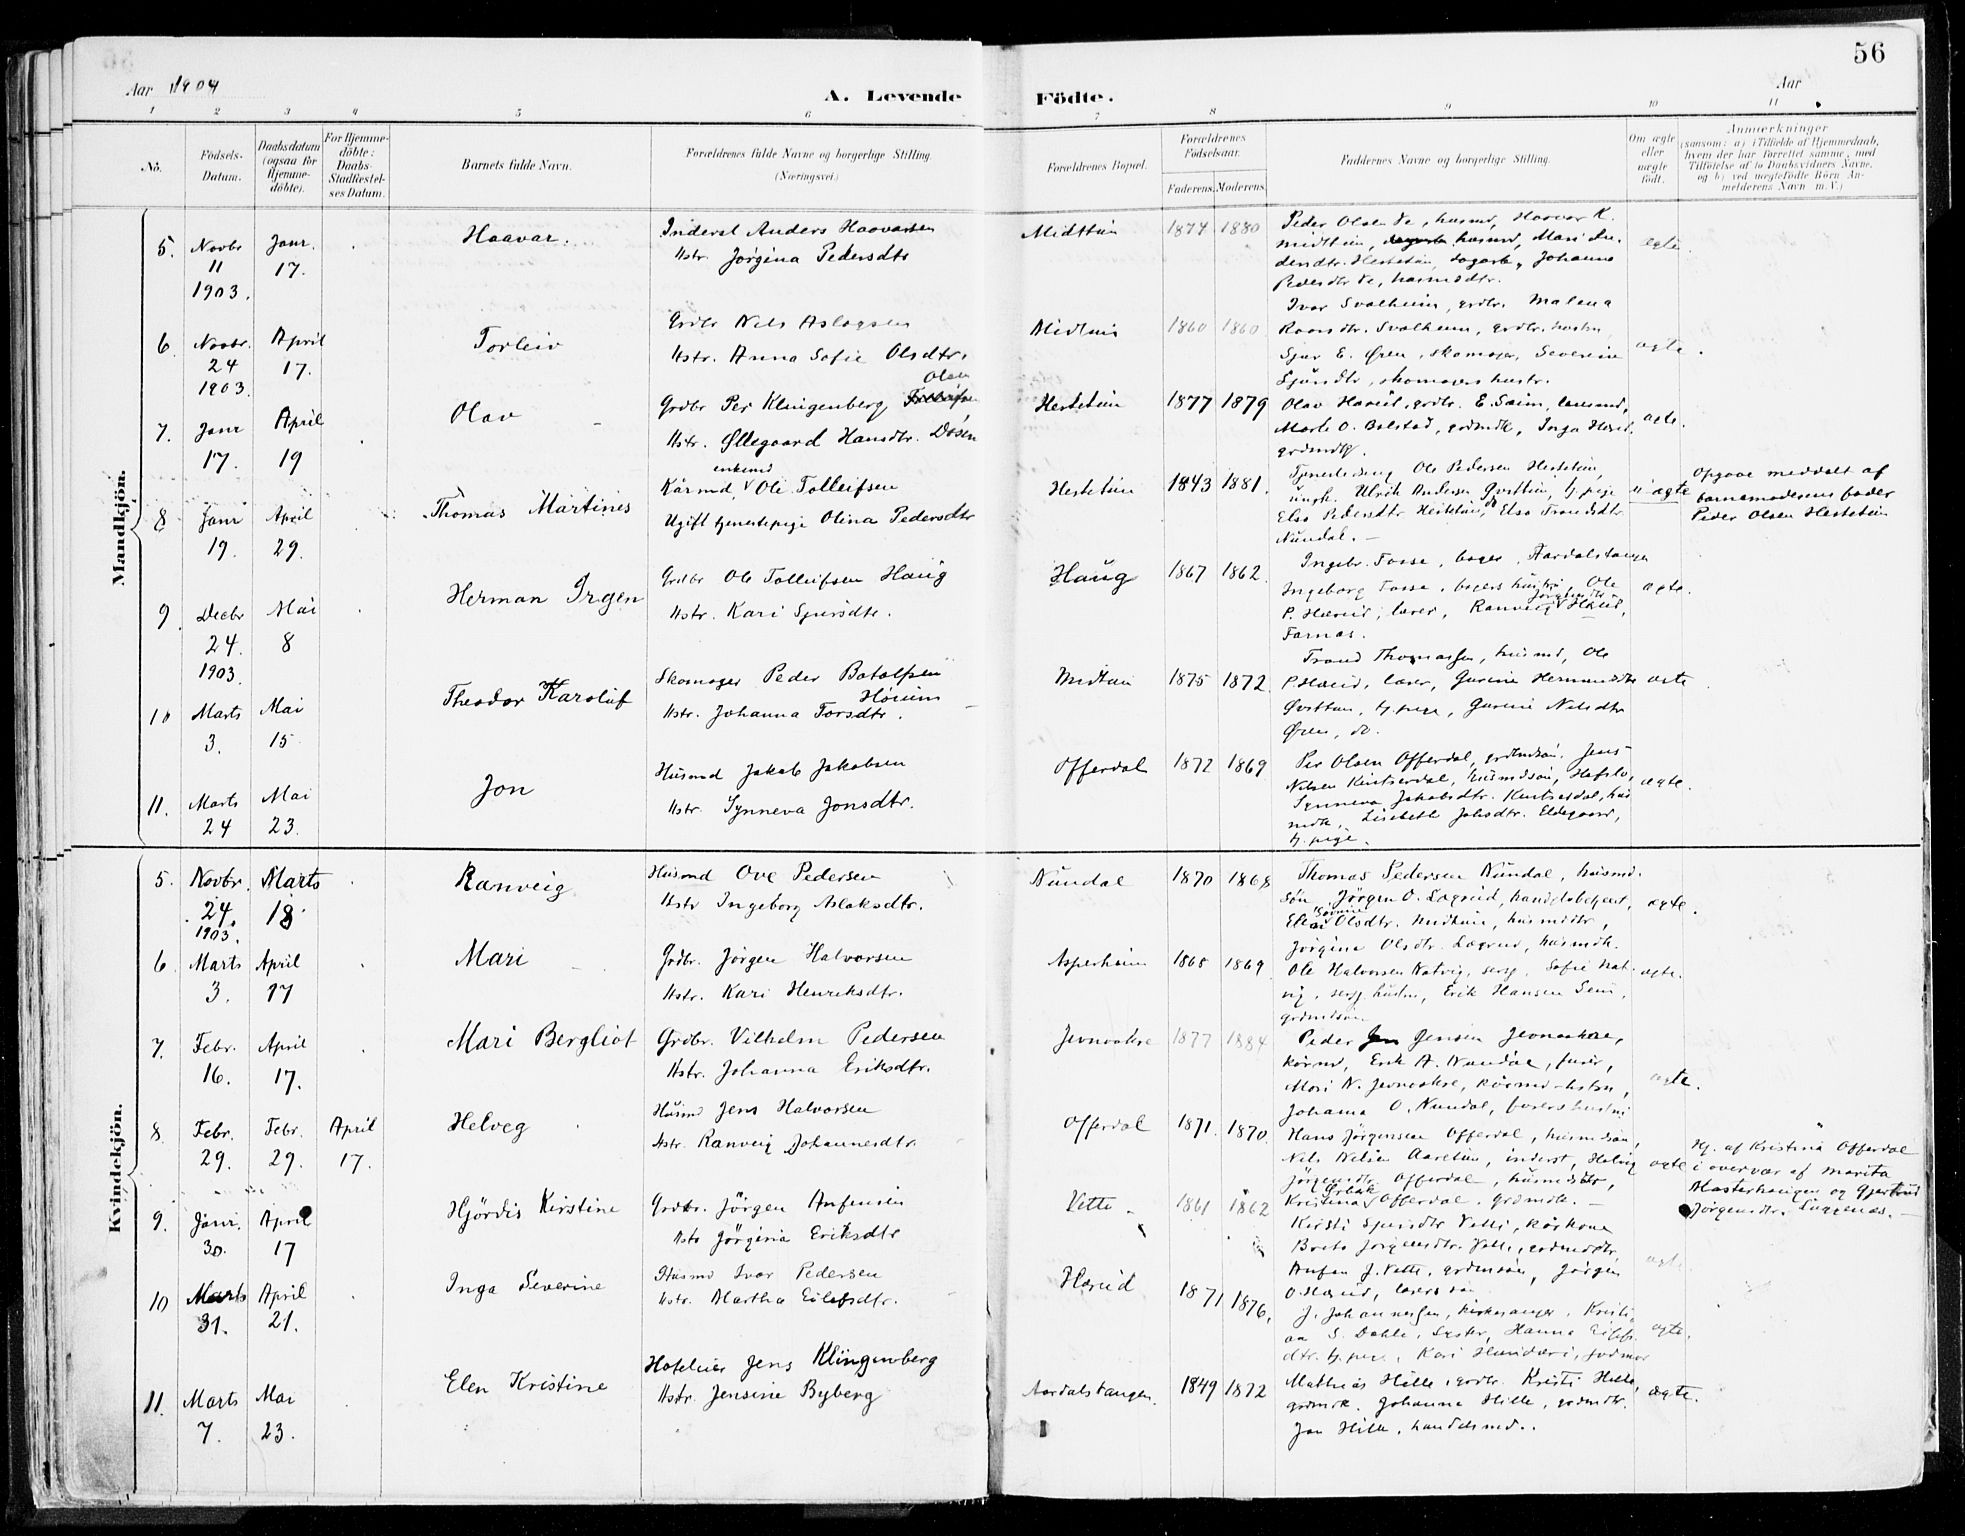 56
Aar 1904
A. Levende Födte.
Aar
1 2 3 4 5 6 7 8 9 10 11
No.
Födsels-Datum.
Daabsdatum (ogsaa for Hjemme-döbte).
For Hjemme-döbte: Daabs-Stadfæstel-ses Datum.
Barnets fulde Navn.
Forældrenes fulde Navne og borgerlige Stilling. (Næringsvei.)
Forældrenes Bopæl.
Forældrenes Födselsaar.
Faderens. Moderens.
Faddernes Navne og borgerlige Stilling.
Om ægte eller uægte födt.
Anmærkninger
(saasom: a) i Tilfælde af Hjemmedaab,
hvem der har forrettet samme, med
Tilföielse af to Daabsvidners Navne,
og b) ved uægtefödte Börn An-
melderens Navn m. V.)
Mandkjön.
5. Novbr 11 1903. Janr. 17. Haavar.
Inderst Anders Haavarsen
Hstr. Jørgina Pedersdtr
Midttun 1874 1880
Peder Olsen Ve, husmd, Haavar K.
Midttun, husmd, Mari
dendtr. Hestetun, Johanna
Pedersdtr Ve, husmdsdtr.
ægte.
6. Novbr. 24 1903. April 17. Torleiv
Grdbr Nils Aslagsen
Hstr. Anna Sofie Olsdtr.
Midtun 1860 1860
Ivar Svalheim, grdbr. Malena
Svalheim, grdbr. hustru
Sjur E. Øren, skomager, Severine
Sjursdtr, skomagers hustr.
ægte.
7. Janr 17. April 19 Olav
Grdbr Per Klingenberg Olsen
Hstr. Øllegaard Hansdtr. Døsen
Hestetun 1877 1879
Olav Hæreid, grdbr. E. Seim, lensmd,
Marte O. Bolstad, grdmdk, Inga Hæreid,
grdmdk.
ægte.
8 Janr 19. April 29. Thomas Martines
enkemd
Kårmd, Ole Tolleifsen
Ugift tjenestepige Olina Pedersdtr
Hestetun 1843 1881.
Ole Pedersen Hestetun,
ungk. Ulrik Andersen Qvsttun, tj.pige
Elsa Pedersdtr Hestetun, do Elsa Trondsdtr
Nundal. –
uægte
Opgave meddelt af
barnemoderens fader
Peder Olsen Hestetun
9. Decbr 24. 1903. Mai 8 Herman Irgen
Grdbr Ole Tolleifsen Haug
Hstr. Kari Sjursdtr.
Haug 1867 1862.
Ingebr. Fosse, bager, Aardalstangen
Ingeborg Fosse, bagers hustru, Ole
P. Hæreid, lærer, Ranveig Jørgensdtr Hæreid,
Farnes.
ægte.
10 Marts 3. Mai 15 Theodor Karoluf
Skomager Peder Botolfsen
Høium
Hstr. Johanna Torsdtr.
Midtun 1875 1872.
Trond Thomassen, husmd, Ole
P. Hæreid, lærer, Gurine Hermundsdtr
tj.pige, Gurine Nilsdtr
Øren, do.
ægte
11. Marts 24 Mai 23. Jon
Husmd Jakob Jakobsen
Hstr. Synneva Jonsdtr.
Offerdal 1872 1869
Per Olsen Offerdal, grdmdsøn. Jens
Nilsen husmdsøn, Hafslo,
Synneva Jakobsdtr. hus
mdk, Lisebeth Johsdtr. Eldegaard,
tj.pige.
ægte.
Kvindekjön.
5. Novbr. 24. 1903. Marts 18. Ranveig
Husmd Ove Pedersen
Hstr Ingeborg Aslaksdtr.
Nundal 1870 1868
Thomas Pedersen Nundal, husmd.
søn, Jörgen O. Lægreid, handelsbetjent,
Olsdtr. Midtun, husmdtr,
Jörgina Olsdtr. Lægreid, husmdk.
ægte.
6. Marts 3. April 17 Mari
Grdbr. Jörgen Halvorsen
Hstr. Kari Henriksdtr.
Asperheim 1865 1869
Ole Halvorsen Natvig, serg. Sofie Nat-
vig, serg. hustru, Erik Hansen Seim,
grdmdsøn.
ægte.
7. Febr. 16. April 17. Mari Bergliot
Grdbr. Vilhelm Pedersen
Hstr. Johanna Eriksdtr.
Jevnaakre 1877 1884
Peder Jensen Jevnaakre,
kårmd, Erik A. Nundal, furér,
Mari N. Jevnaakre, kårmd-hstru,
Johanna O. Nundal, furers hustru
ægte.
8. Febr. 29. Febr. 29. April 17. Helveg
Husmd Jens Halvorsen
Hstr. Ranveig Johannesdtr.
Offerdal 1871. 1870.
Hans Jörgensen Offerdal, husmdsøn,
Nils Nilsen Aaretun, inderst, Helvig
Jörgensdtr Offerdal, husmdsdtr,
Kristina Offerdal, grdmdk. –
ægte
Hj. af Kristina Offerdal
i overvær af Marita
og Gjertrud
Jörgensdtr.
9. Janr. 30. April 17 Hjördis Kirstine
Grdbr. Jörgen Anfensen
Hstr Jörgina Eriksdtr
Vetti 1861 1862
Kirsti Sjursdtr Vetti, kårkone
Brita Jörgensdtr. Vetti, grdmdsdtr,
Anfen J. Vetti, grdmdsøn, Jörgen
O. Hæreid, lærers søn
ægte
10 Marts 31. April 21. Inga Severine
Husmd Ivar Pedersen
Hstr. Martha Eilefsdtr.
Hæreid 1871 1876.
J. Johannessen, kirkesanger, Kristi-
an S. Dahle, Hanna Eilefs-
dtr. tj.pige, Kari jordmor
ægte.
11. Marts 7. Mai 23. Elen Kristine
Hoteleier Jens Klingenberg
Hstr. Jensine Byberg
Aardalstangen. 1849 1872
Mathias Hille, grdbr. Kristi Hille,
grdmdk. Johanna Hille, grdmdtr.
Jon Hille, handelsmd..
ægte.